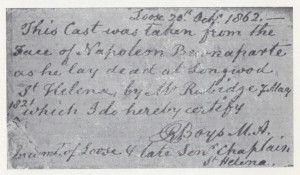 Loose 20th Octr 1862.
This Cast was taken from the
Face of Napoleon Buonaparte
as he lay dead at Longwood
St Helena, by Mr Rubidge 7 May
1821 which I do hereby certify
R Boys M.A.
Incumt. of Loose & late Senr Chaplain
St Helena.